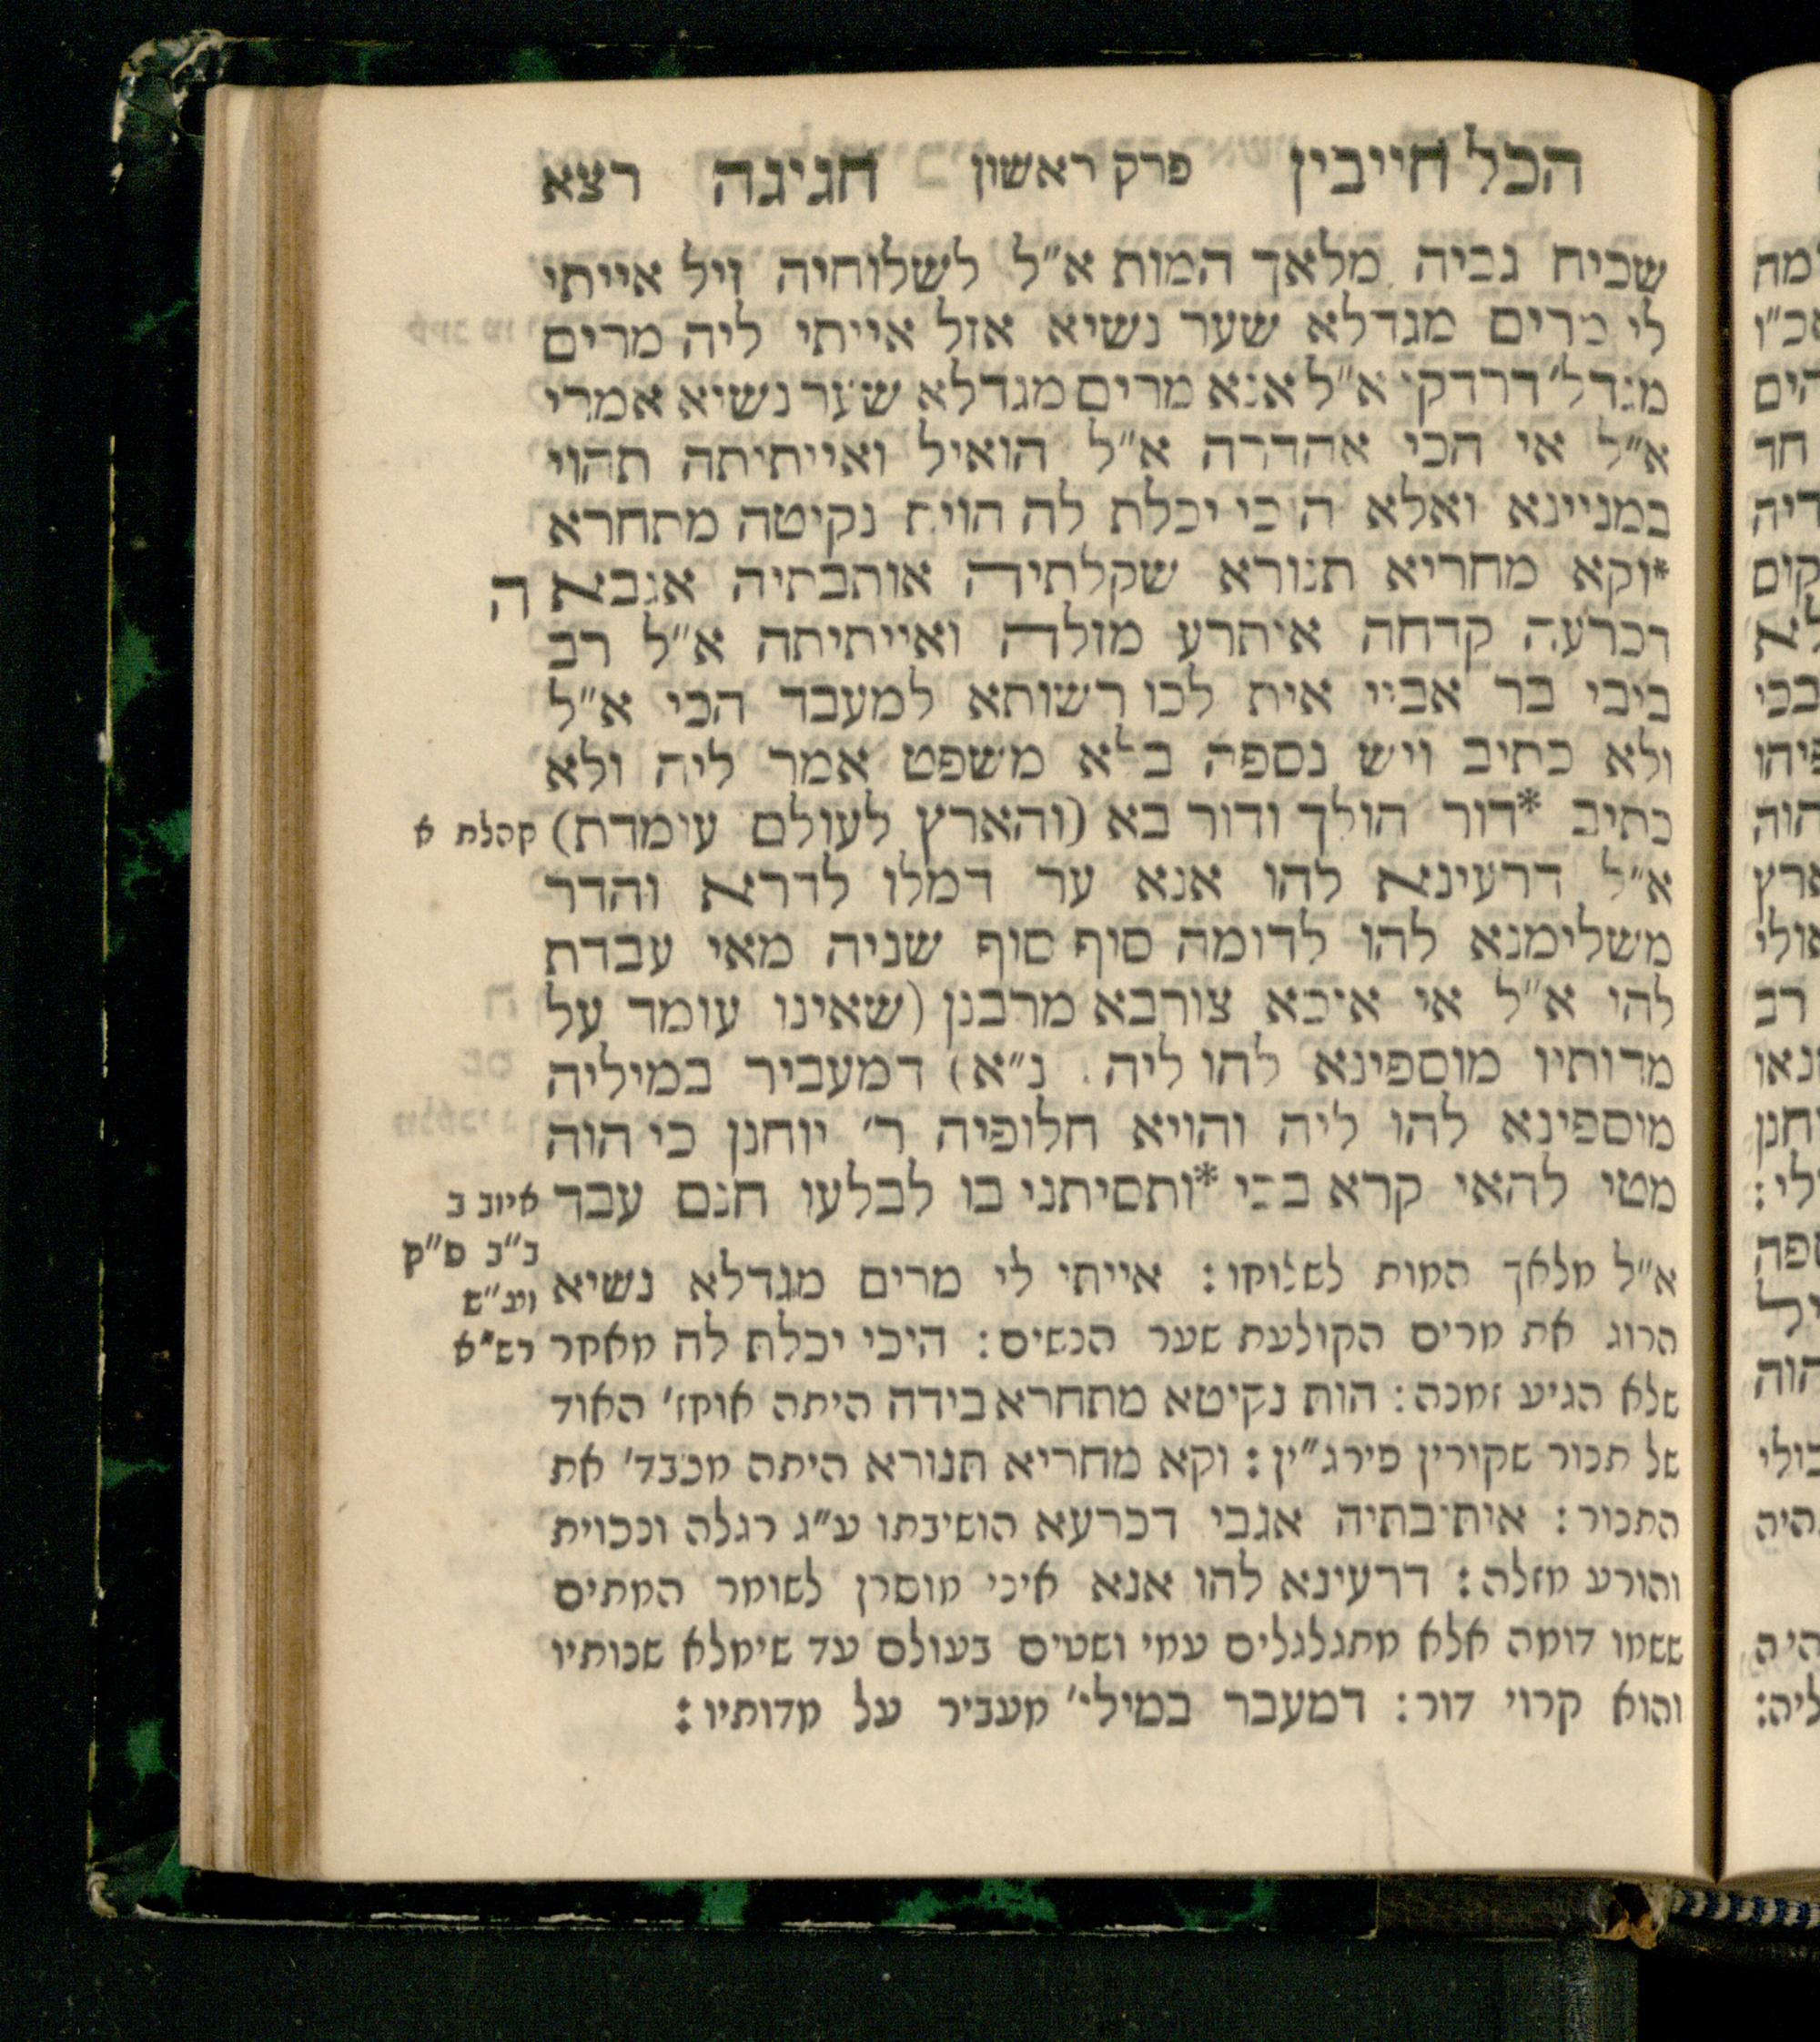 הכל חייבין פרק ראשון חגיגה רצא
שכיח גביה מלאך המות א"ל לשלוחיה זיל אייתי
לי מרים מגדלא שער נשיא אזל אייתי ליה מרים
מגדל' דרדקי א"ל אנא מרים מגדלא שער נשיא אמרי
א"ל אי הכי אהדרה א"ל הואיל ואייתיתה תהוי
במניינא ואלא היכי יכלת לה הוית נקיטה מתחרא
*וקא מחריא תנורא שקלתיה אותבתיה אגבא ה
דכרעה קדחה איתרע מזלה ואייתיתה א"ל רב
ביבי בר אביי אית לכו רשותא למעבד הכי א"ל
ולא כתיב ויש נספה בלא משפט אמר ליה ולא
כתיב *דור הולך ודור בא (והארץ לעולם עומדת) קהלת א
א"ל דרעינא להו אנא עד דמלו לדרא והדר
משלימנא להו לדומה סוף סוף שניה מאי עבדת
להו א"ל אי איכא צורבא מרבנן (שאינו עומד על
מדותיו מוספינא להו ליה. נ"א) דמעביר במיליה
מוספינא להו ליה והויא חלופיה ר' יוחנן כי הוה
מטי להאי קרא בכי *ותסיתני בו לבלעו חנם עבד
איוב ב
ב"ב ס"ק
וע"ש
רש"א
א"ל מלאך המות לשלוחו: אייתי לי מרים מגדלא נשיא
הרוג את מרים הקולעת שער הנשים: היכי יכלת לה מאחר
שלא הגיע זמנה: הות נקיטא מתחרא בידה היתה אוחז' האוד
של תנור שקורין פירג"ין: וקא מחריא תנורא היתה מכבד' את
התנור: אותיבתיה אגבי דכרעא הושיבתו ע"ג רגלה ונכוית
והורע מזלה: דרעינא להו אנא איני מוסרן לשומר המתים
ששמו דומה אלא מתגלגלים עמי ושטים בעולם עד שימלא שנותיו
והוא קרוי דור: דמעבר במילי' מעביר על מדותיו: